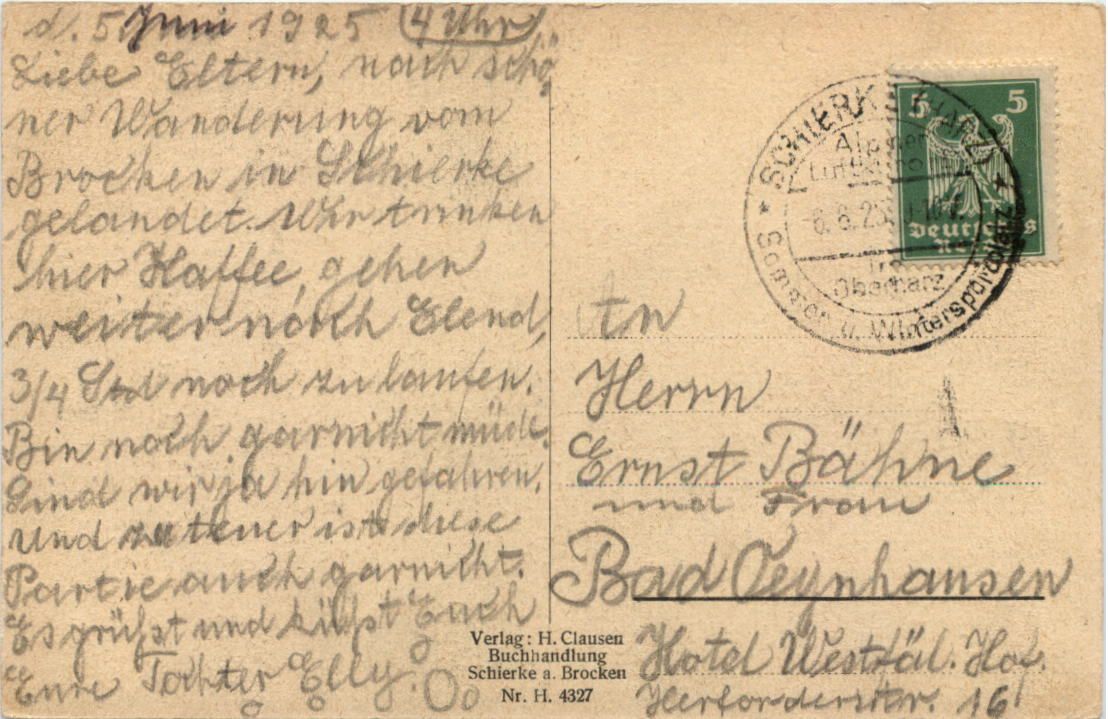 d. 5 Juni 1925 (4 Uhr)
Liebe Eltern, nach schö,
ner Wanderung vom
Brocken in Schierke
gelandet. Wir trinken
hier Kaffee, gehen
weiter nach Elend,
3/4 Std noch zu laufen.
Bin noch garnicht müde.
Sind wir ja hin gefahren.
Und zu teuer ist diese
Partie auch garnicht.
Es grüßt und küßt Euch
Eure Tochter Elly.
SCHIERKE (HARZ)
6.6.25
Oberharz
Sommer u. Wintersportplatz
5 5
Deutsches
An
Herrn
Ernst Bähne
und Frau
Bad Oeynhausen
Hotel Westfäl. Hof.
Herforderstr. 16
Verlag: H. Clausen
Buchhandlung
Schierke a. Brocken
Nr. H. 4327